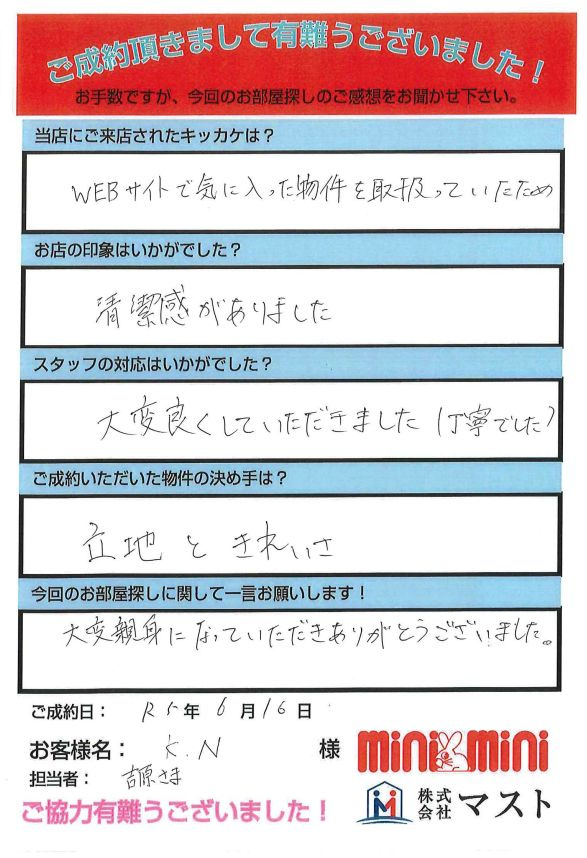 ご成約頂きまして有難うございました!
お手数ですが、今回のお部屋探しのご感想をお聞かせ下さい。
当店にご来店されたキッカケは?
WEBサイトで気に入った物件を取扱っていたため
お店の印象はいかがでした?
清潔感がありました
スタッフの対応はいかがでした?
大変良くしていただきました(丁寧でした)
ご成約いただいた物件の決め手は?
立地ときれいさ
今回のお部屋探しに関して一言お願いします!
大変親身になっていただきありがとうございました。
ご成約日: R5年6月16日
お客様名: K.N 様
担当者: 吉原さま
ご協力有難うございました!
mini mini
株式会社マスト